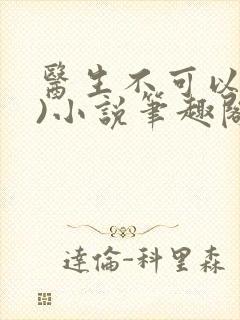 醫生不可以
)小說筆趣閣
達倫-科里森